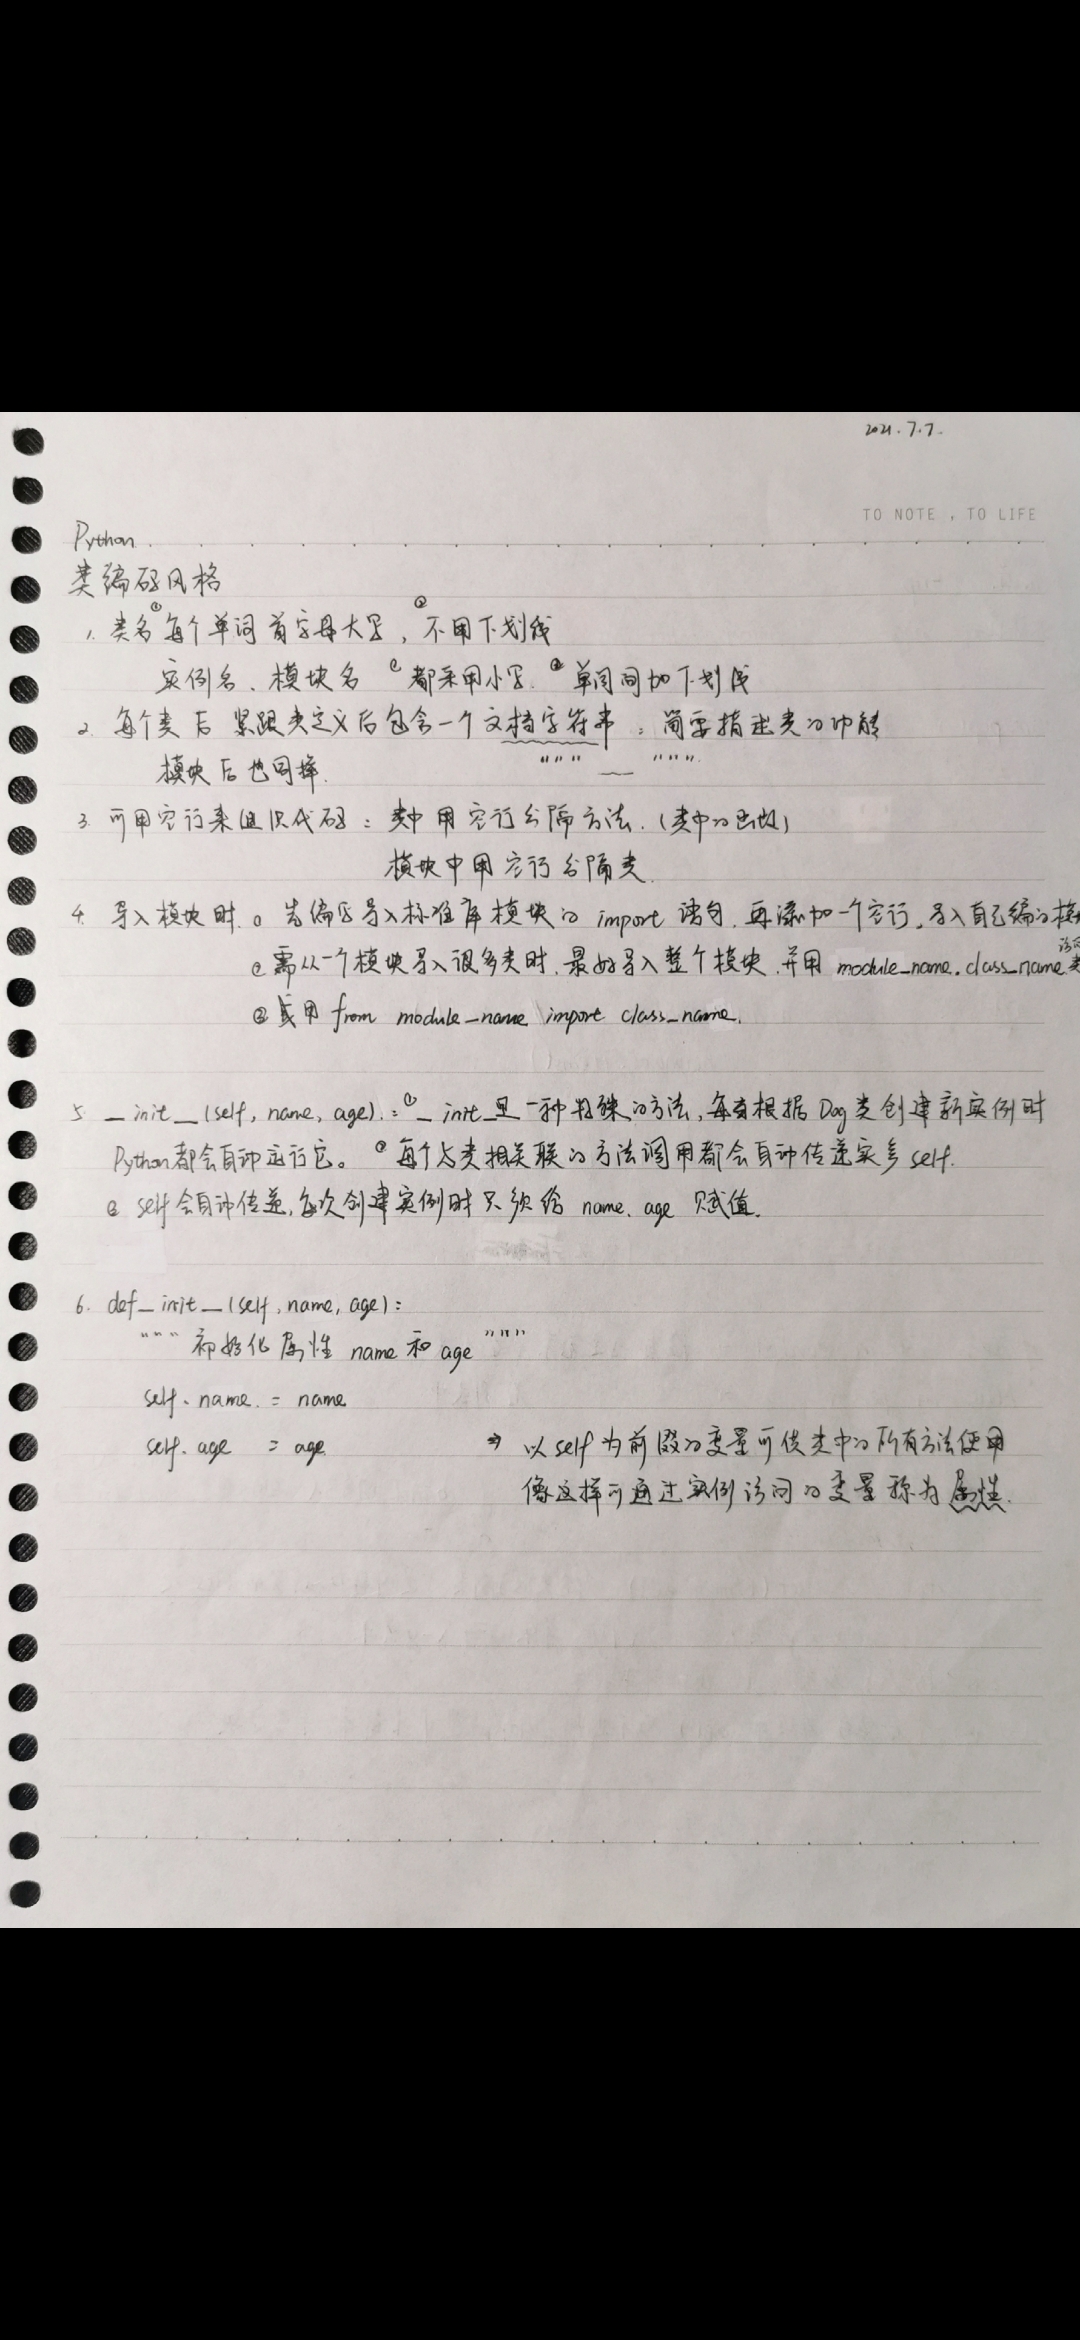 2021.7.7.
TO NOTE , TO LIFE
Python
类编码风格
1. 类名①每个单词首字母大写，②不用下划线
实例名、模块名 ①都采用小写. ②单词间加下划线
2. 每个类后 紧跟类定义后包含一个文档字符串：简要指出类的功能
模块后也同样. """ """
3. 可用空行来组织代码：类中用空行分隔方法.(类中的函数)
模块中用空行分隔类.
4. 导入模块时. ① 先编写导入标准库模块的 import 语句, 再添加一个空行, 导入自己编的模
② 需从一个模块导入很多类时, 最好导入整个模块, 并用 module_name.class_name 访问类
③ 或用 from module_name import class_name.
5. _init_(self, name, age).: ①_init_是一种特殊的方法, 每当根据 Dog 类创建新实例时
Python都会自动运行它。②每个与类相关联的方法调用都会自动传递实参 self.
③ self会自动传递, 每次创建实例时只须给 name、age 赋值.
6. def_init_(self, name, age):
""" 初始化属性 name 和 age """
self.name = name
self.age = age ⇒ 以self为前缀的变量可供类中的所有方法使用
像这样可通过实例访问的变量称为属性.